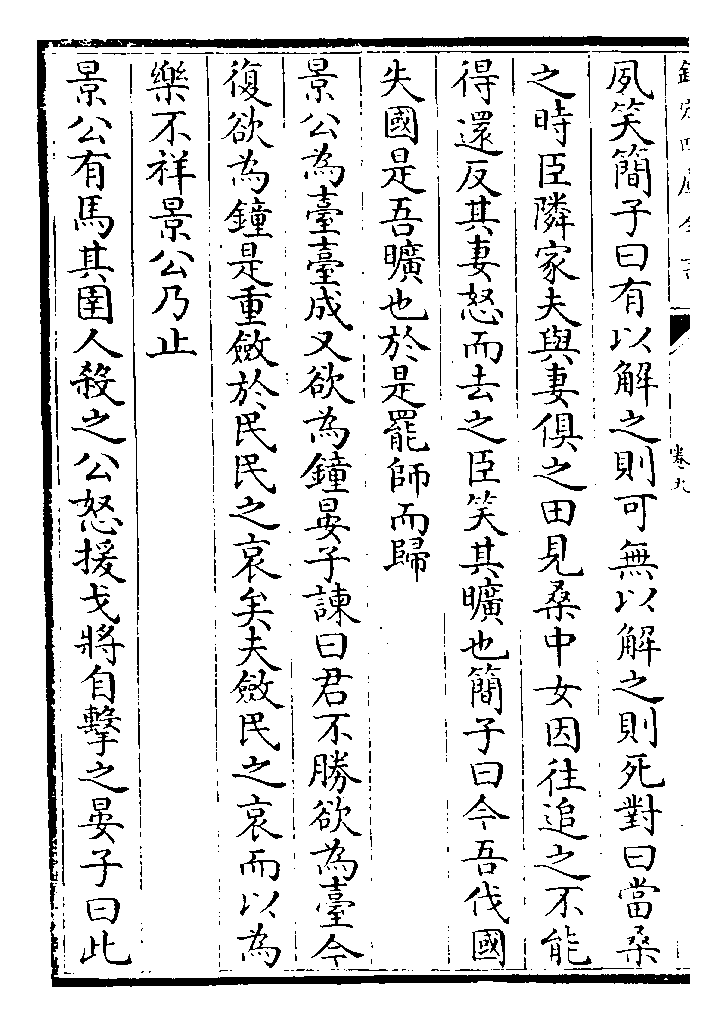 夙笑簡子曰有以解之則可無以解之則死對曰當桑
之時臣隣家夫與妻俱之田見桑中女因往追之不能
得還反其妻怒而去之臣笑其曠也簡子曰今吾伐國
失國是吾曠也於是罷師而歸
景公為臺臺成又欲為鐘晏子諫曰君不勝欲為臺今
復欲為鐘是重斂於民民之哀矣夫斂民之哀而以為
樂不祥景公乃止
景公有馬其圉人殺之公怒援戈將自擊之晏子曰此
卷九